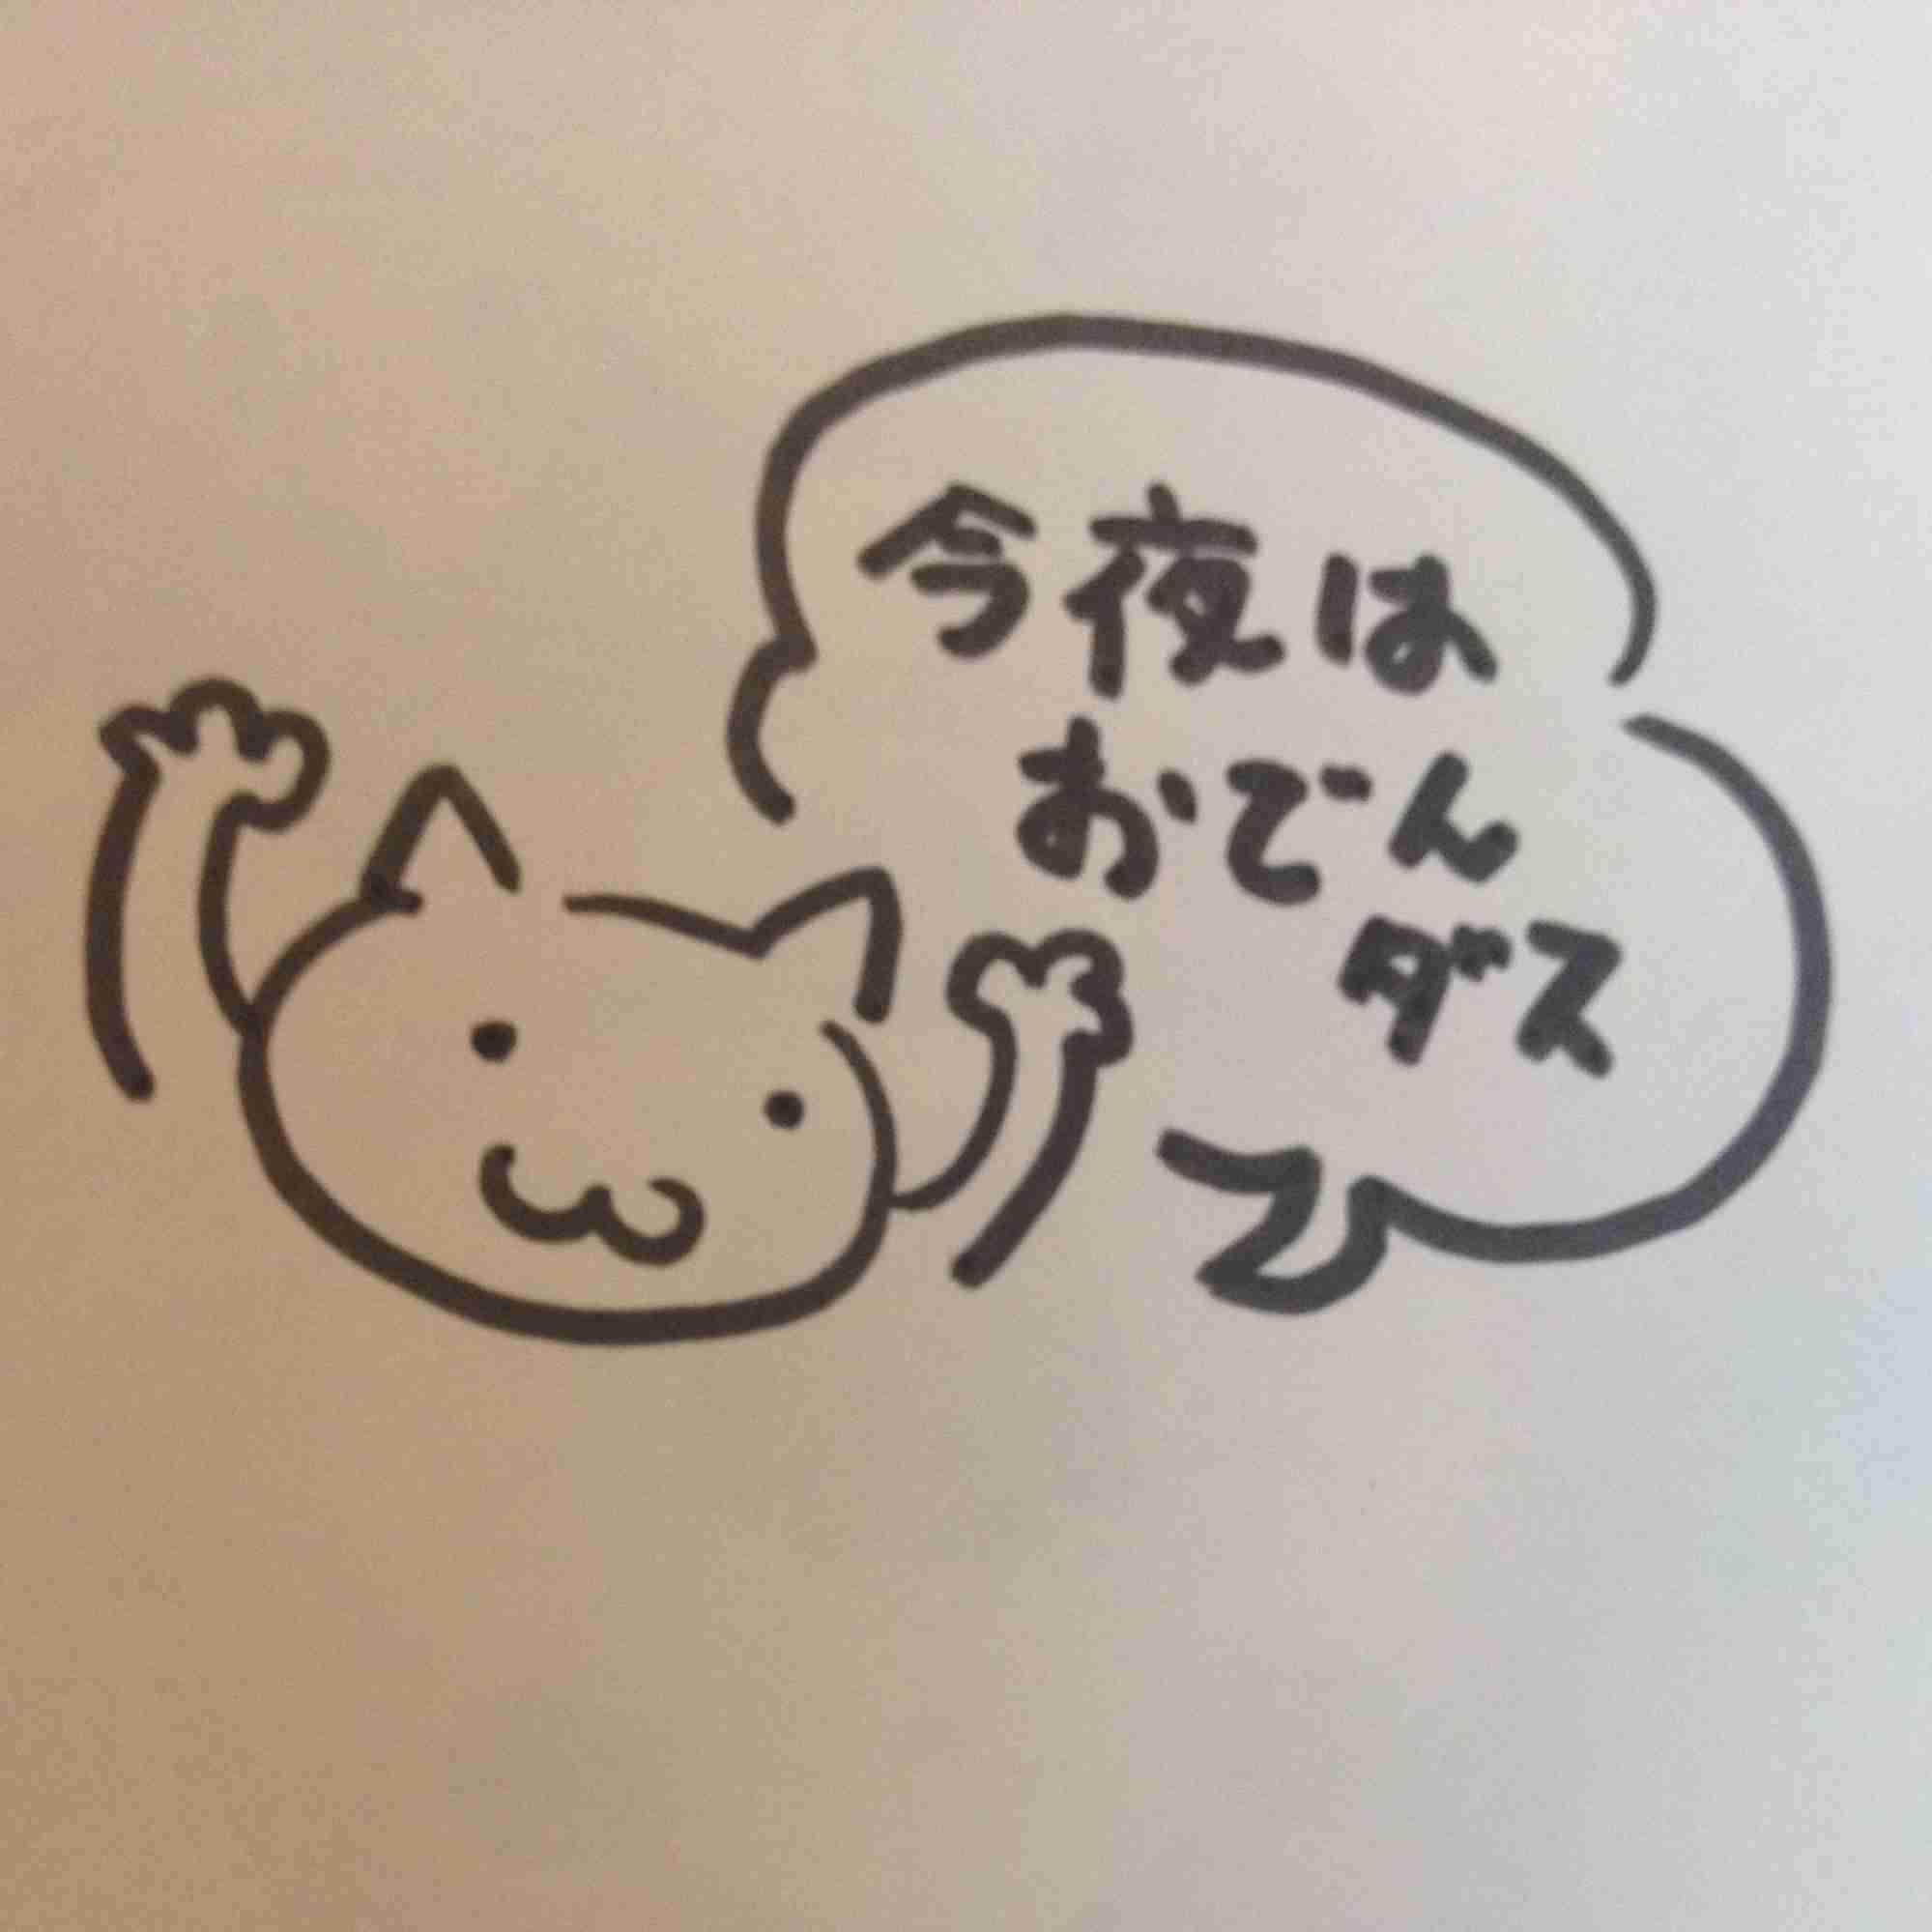 今夜は
おでん
ダス